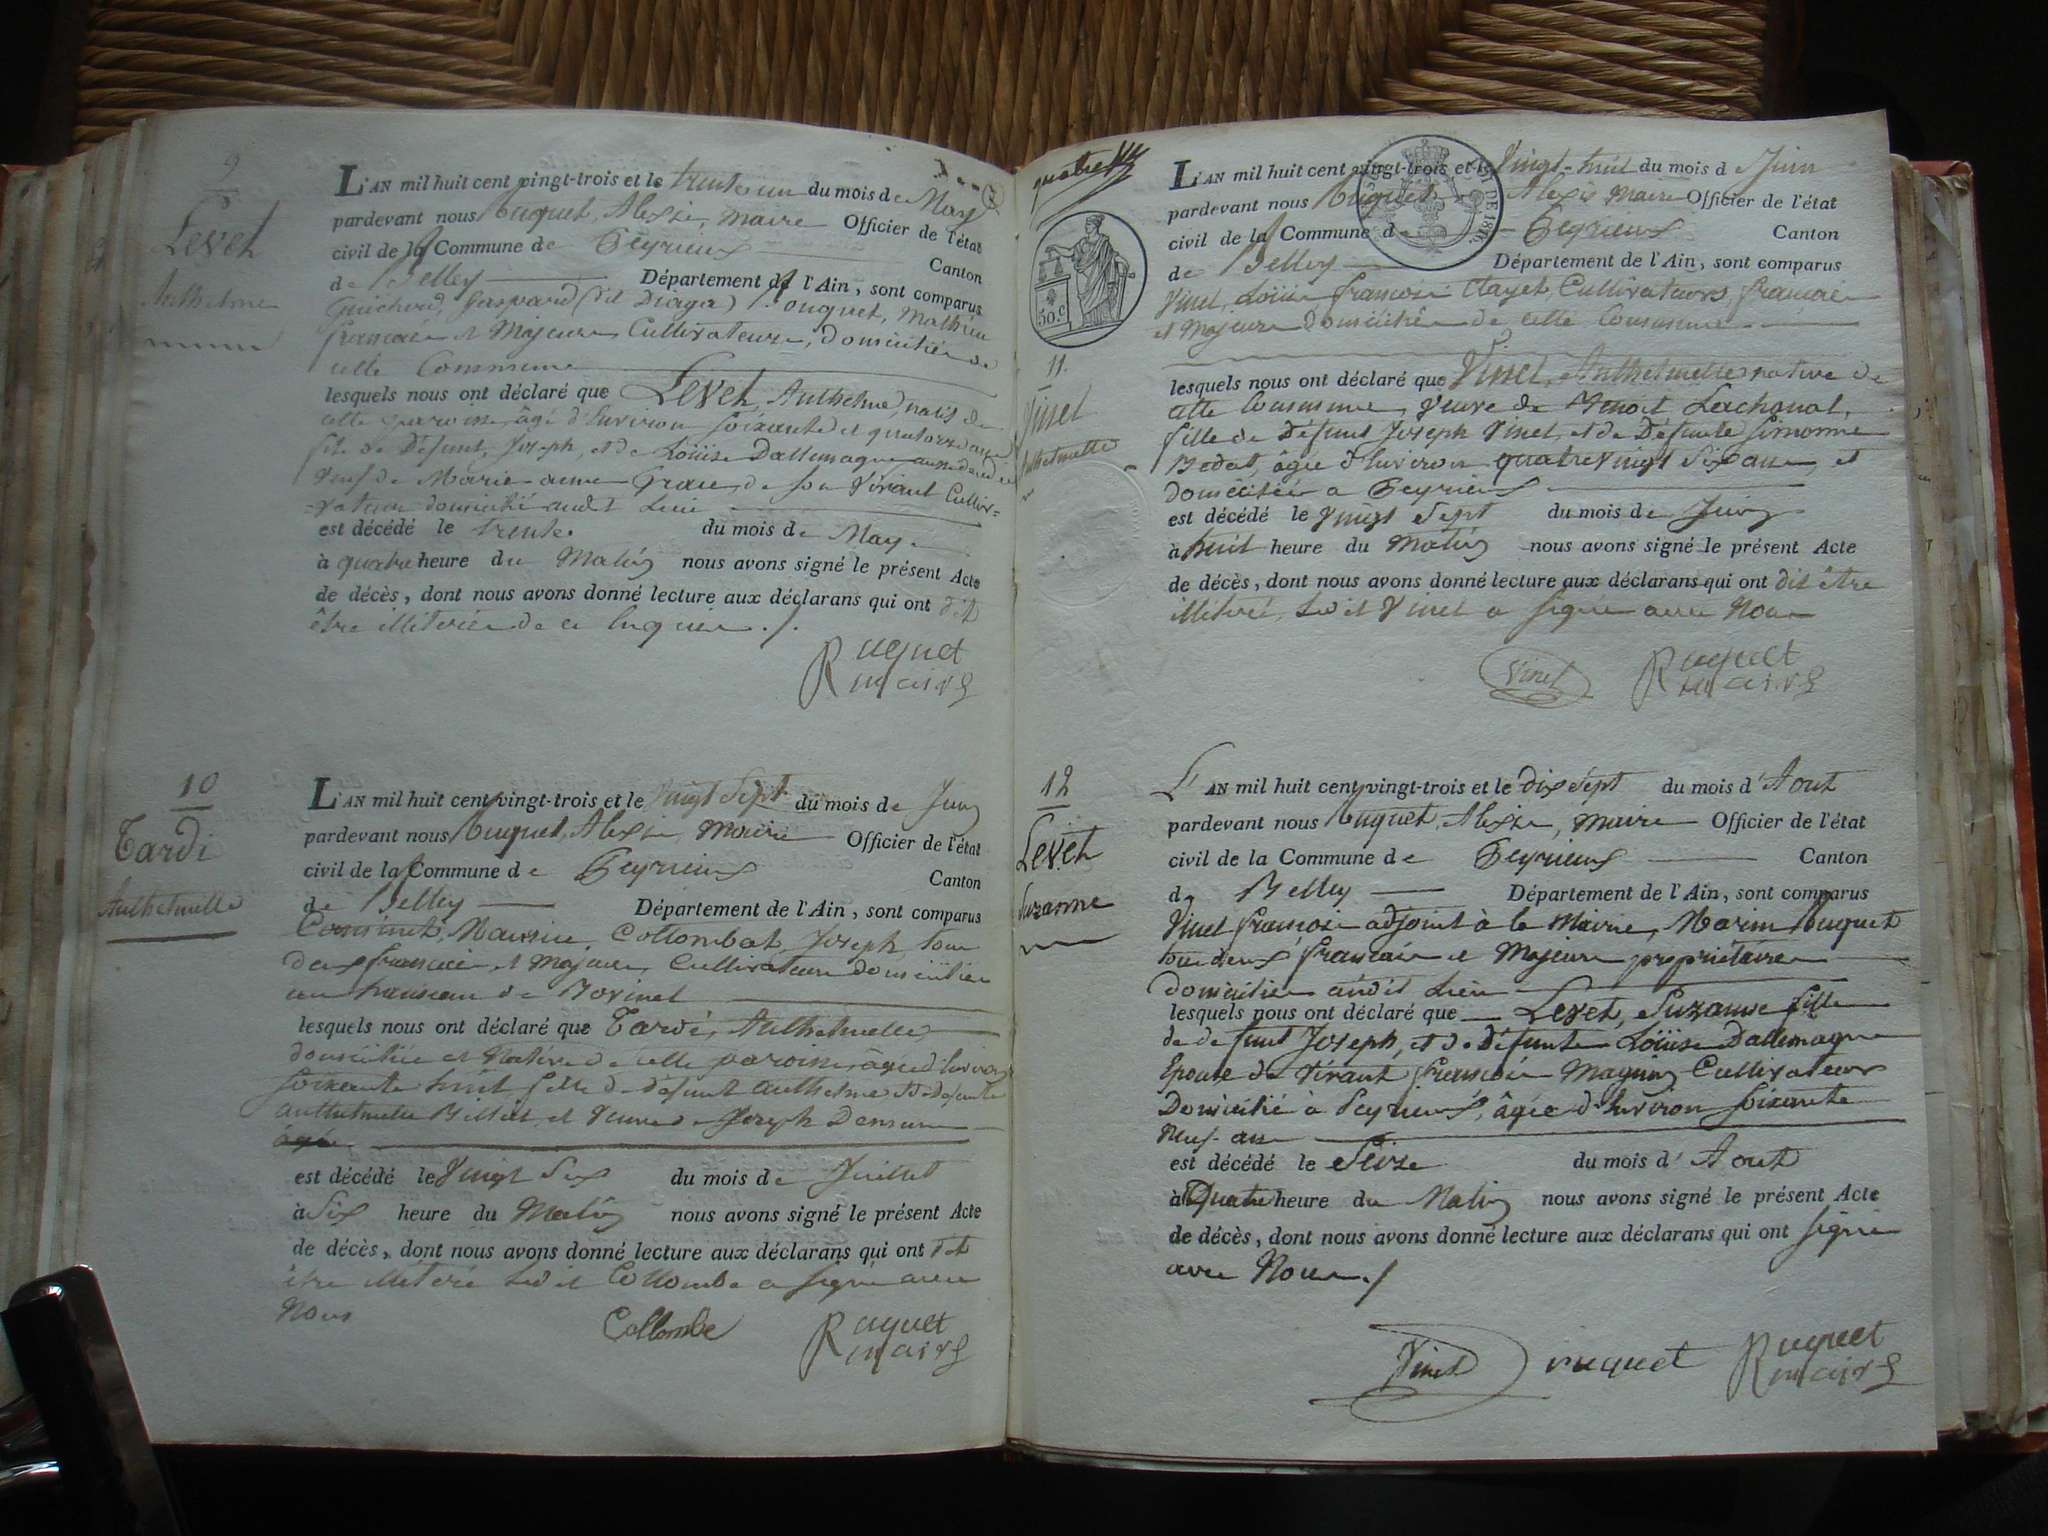 9
Levet
Anthelme
L'AN mil huit cent vingt-trois et le trente un du mois de May
pardevant nous Ruquet, Alexis, maire Officier de l'état
civil de la Commune de Peyrieux Canton
de Belley Département de l'Ain, sont comparus
Guichard, Gaspard (dit Drager) Mathieu
francais et Majeurs Cultivateurs, domiciliés de
cette Commune
lesquels nous ont déclaré que Levet, Anthelme, natif de
cette paroisse âgé d'Environ soixante et quatorze ans
fils de Défunt, Joseph, et de Loüise Dallemagne
veuf de Marie de son Vivant Cultiv=
=vateur domicilié audit Lieu
est décédé le trente du mois de May
à quatre heure du Matin nous avons signé le présent Acte
de décès, dont nous avons donné lecture aux déclarans qui ont dit
être illiterés de ce Enquis ./.
Ruquet
maire
10
Tardi
Anthelmette
L'AN mil huit cent vingt-trois et le vingt Sept du mois de Juin
pardevant nous Ruquet, Alexis, Maire Officier de l'état
civil de la Commune de Peyrieux Canton
de Belley Département de l'Ain, sont comparus
Maurice, Collombat, Joseph, tous
deux francais et Majeurs, Cultivateurs domiciliés
au hameau de
lesquels nous ont déclaré que Tardi, Anthelmette
domiciliée et Native de cette paroisse, âgée d'Environ
soixante huit fille de défunt Anthelme et de défunte
Anthelmette Billiet, et Veuve de Joseph
âgée
est décédé le Vingt Six du mois de Juillet
à Six heure du Matin nous avons signé le présent Acte
de décès, dont nous avons donné lecture aux déclarans qui ont dit
être illiteré Ledit Collombe a signé avec
Nous
Collombe
Ruquet
maire
quatre
50 c.
DE 1816.
11.
Vinet
Anthelmette
L'AN mil huit cent vingt-trois et le Vingt-huit du mois de Juin
pardevant nous Ruquet Alexis Maire Officier de l'état
civil de la Commune de Peyrieux Canton
de Belley Département de l'Ain, sont comparus
Vinet, Loüis francois Clayet, Cultivateurs, francais
et Majeurs domiciliés de cette Commune
lesquels nous ont déclaré que Vinet, Anthelmette native de
cette Commune, Veuve de Benoit Lachanal,
fille de Défunt Joseph Vinet, et de Défunte Simonne
Bedat, âgée d'Environ quatre vingt Six ans, et
domiciliée a Peyrieux
est décédé le vingt Sept du mois de Juin
à huit heure du Matin nous avons signé le présent Acte
de décès, dont nous avons donné lecture aux déclarans qui ont dit être
illiteré, Ledit Vinet a signé avec Nous
Vinet
Ruquet
maire
12
Levet
Suzanne
L'AN mil huit cent vingt-trois et le dix Sept du mois d'Aout
pardevant nous Ruquet, Alexis, maire Officier de l'état
civil de la Commune de Peyrieux Canton
d Belley Département de l'Ain, sont comparus
Vinet francois adjoint à la Mairie, Marin Ruquet
tous deux francais et Majeurs propriétaires
domiciliés audit Lieu
lesquels nous ont déclaré que Levet, Suzanne fille
de defunt Joseph, et de défunte Loüise Dallemagne
Epouse de Vivant francois Magnin Cultivateur
Domicilié à Peyrieux, âgée d'Environ soixante
Neuf ans
est décédé le Seize du mois d'Aout
à Quatre heure du Matin nous avons signé le présent Acte
de décès, dont nous avons donné lecture aux déclarans qui ont signé
avec Nous ./
Vinet
ruquet
Ruquet
maire